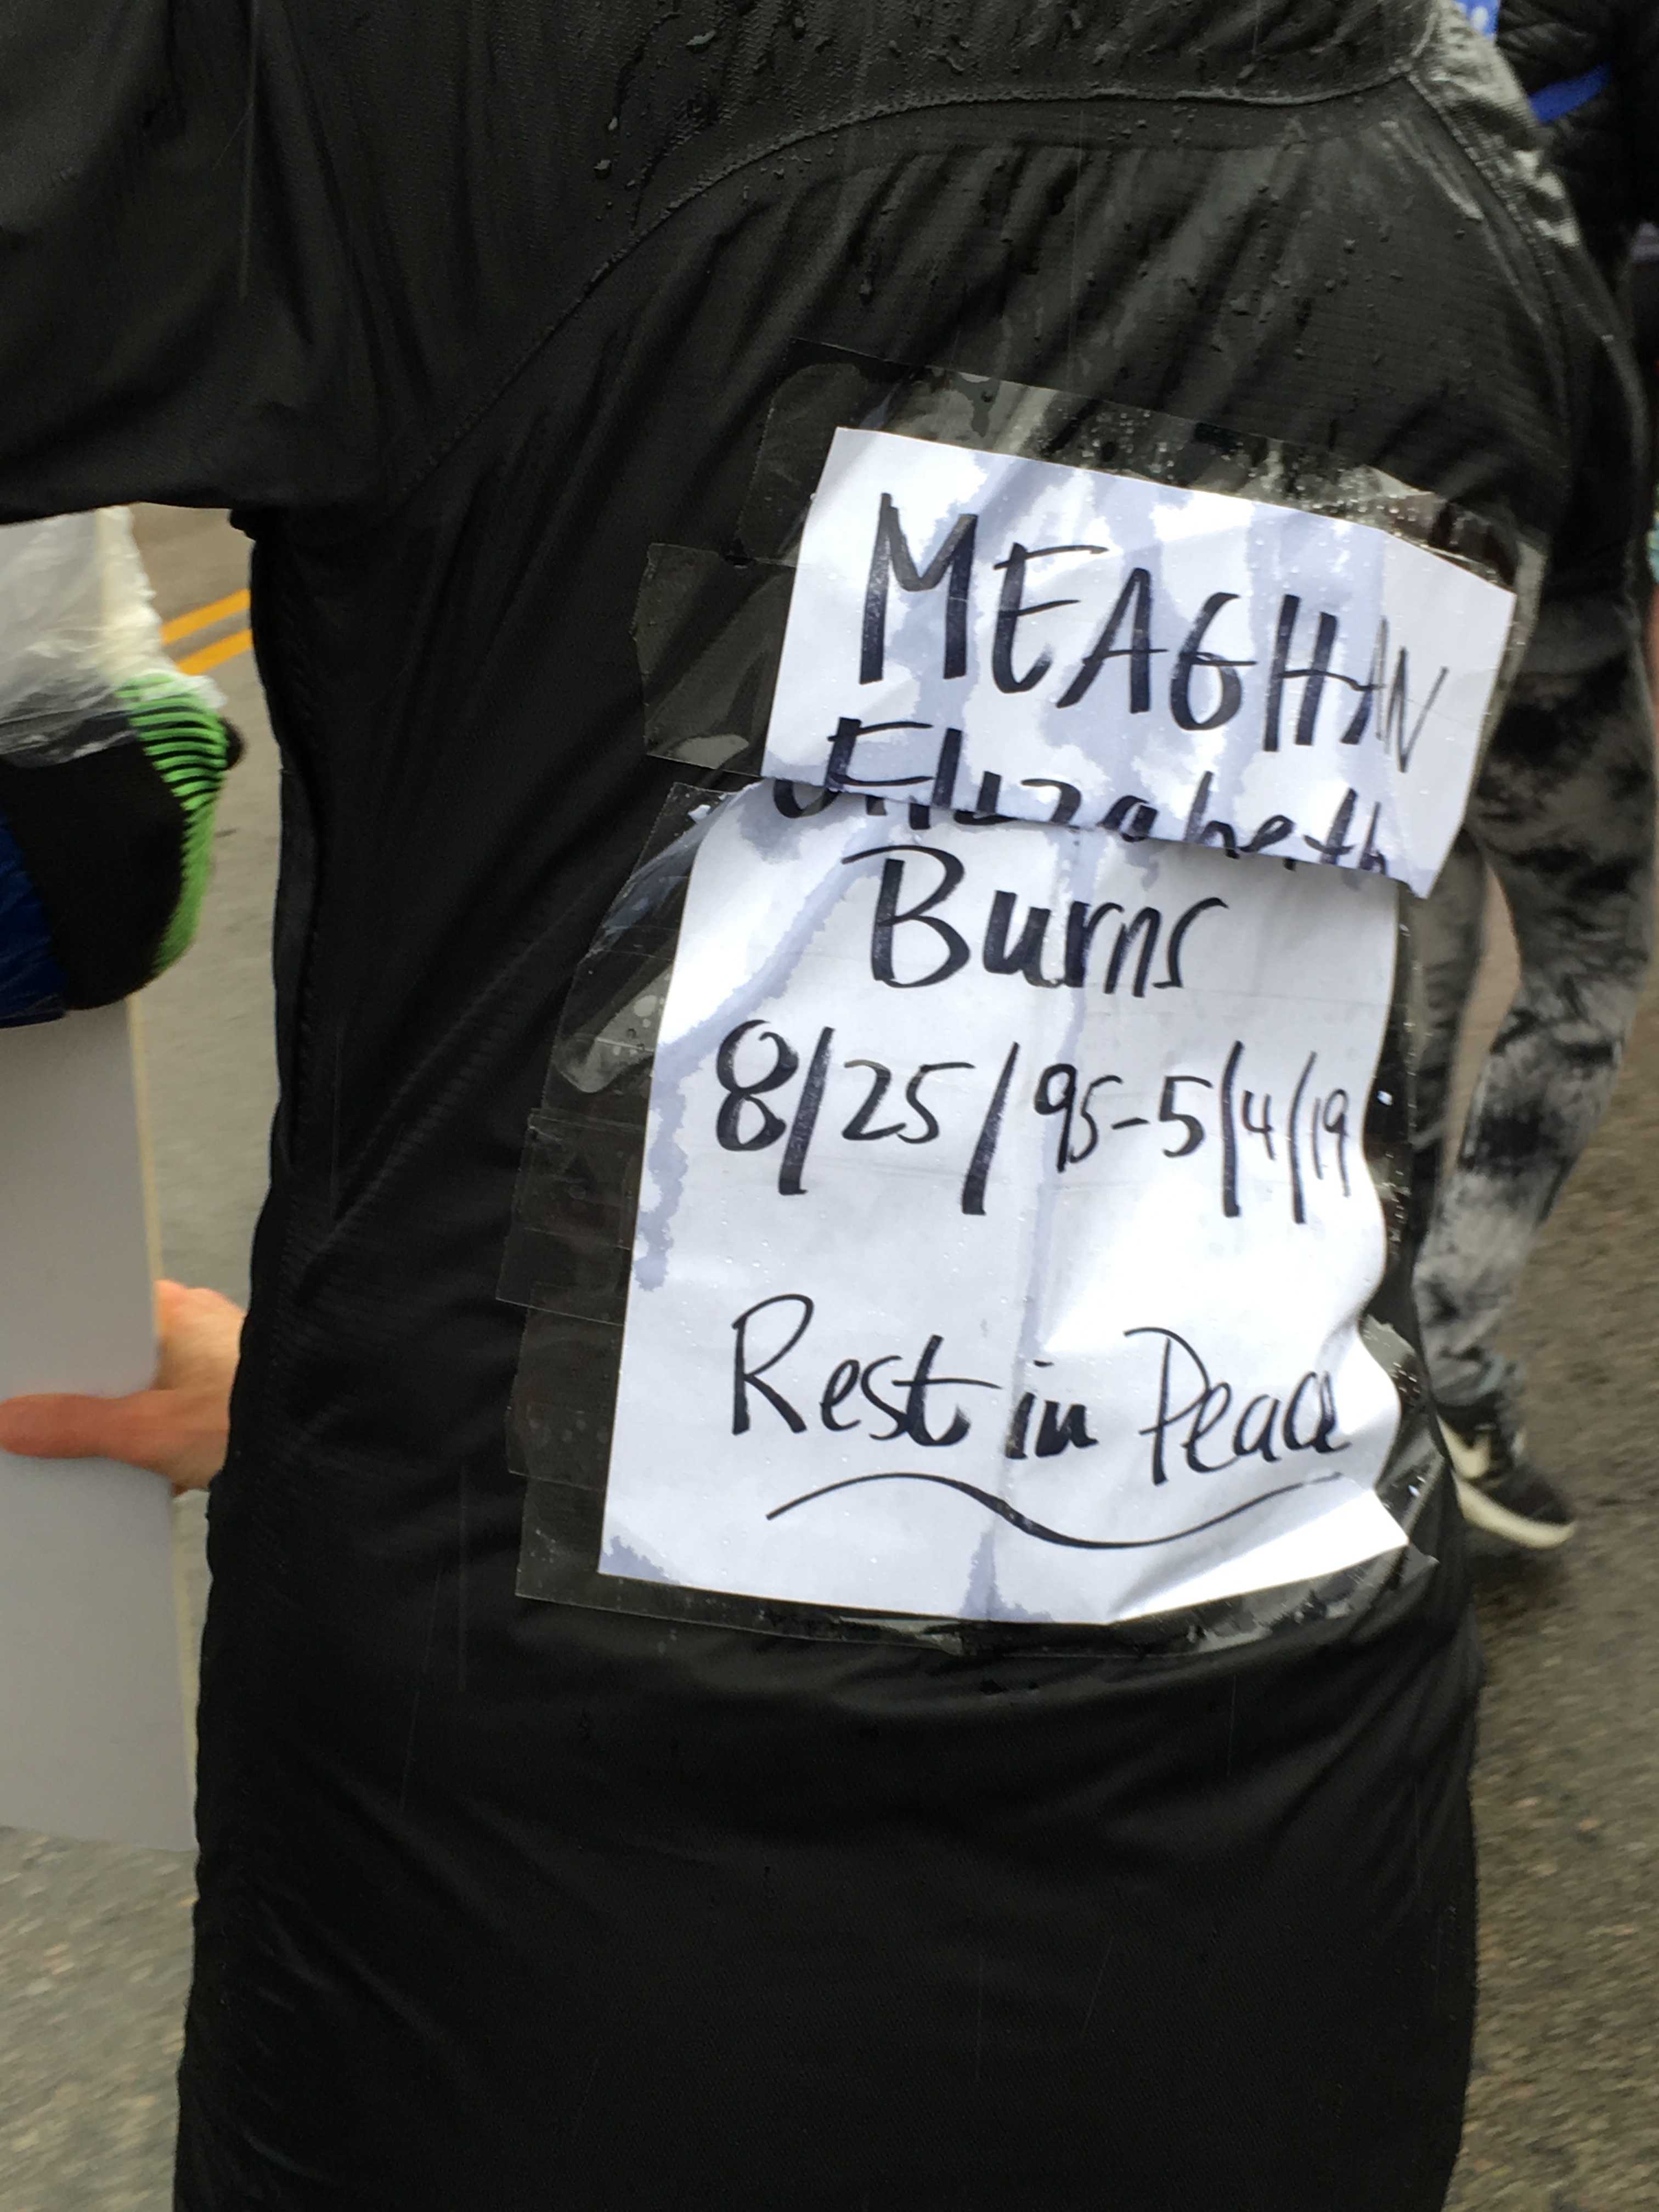 MEAGHAN
Elizabeth
Burns
8/25/95-5/4/19
Rest in Peace